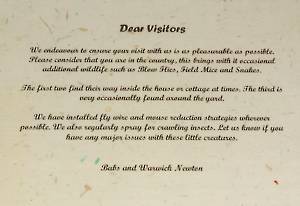 Dear Visitors
We endeavour to ensure your visit with us is as pleasurable as possible.
Please consider that you are in the country, this brings with it occasional
additional wildlife such as Blow Flies, Field Mice and Snakes.
The first two find their way inside the house or cottage at times. The third is
very occasionally found around the yard.
We have installed fly wire and mouse reduction strategies wherever
possible. We also regularly spray for crawling insects. Let us know if you
have any major issues with these little creatures.
Babs and Warwick Newton